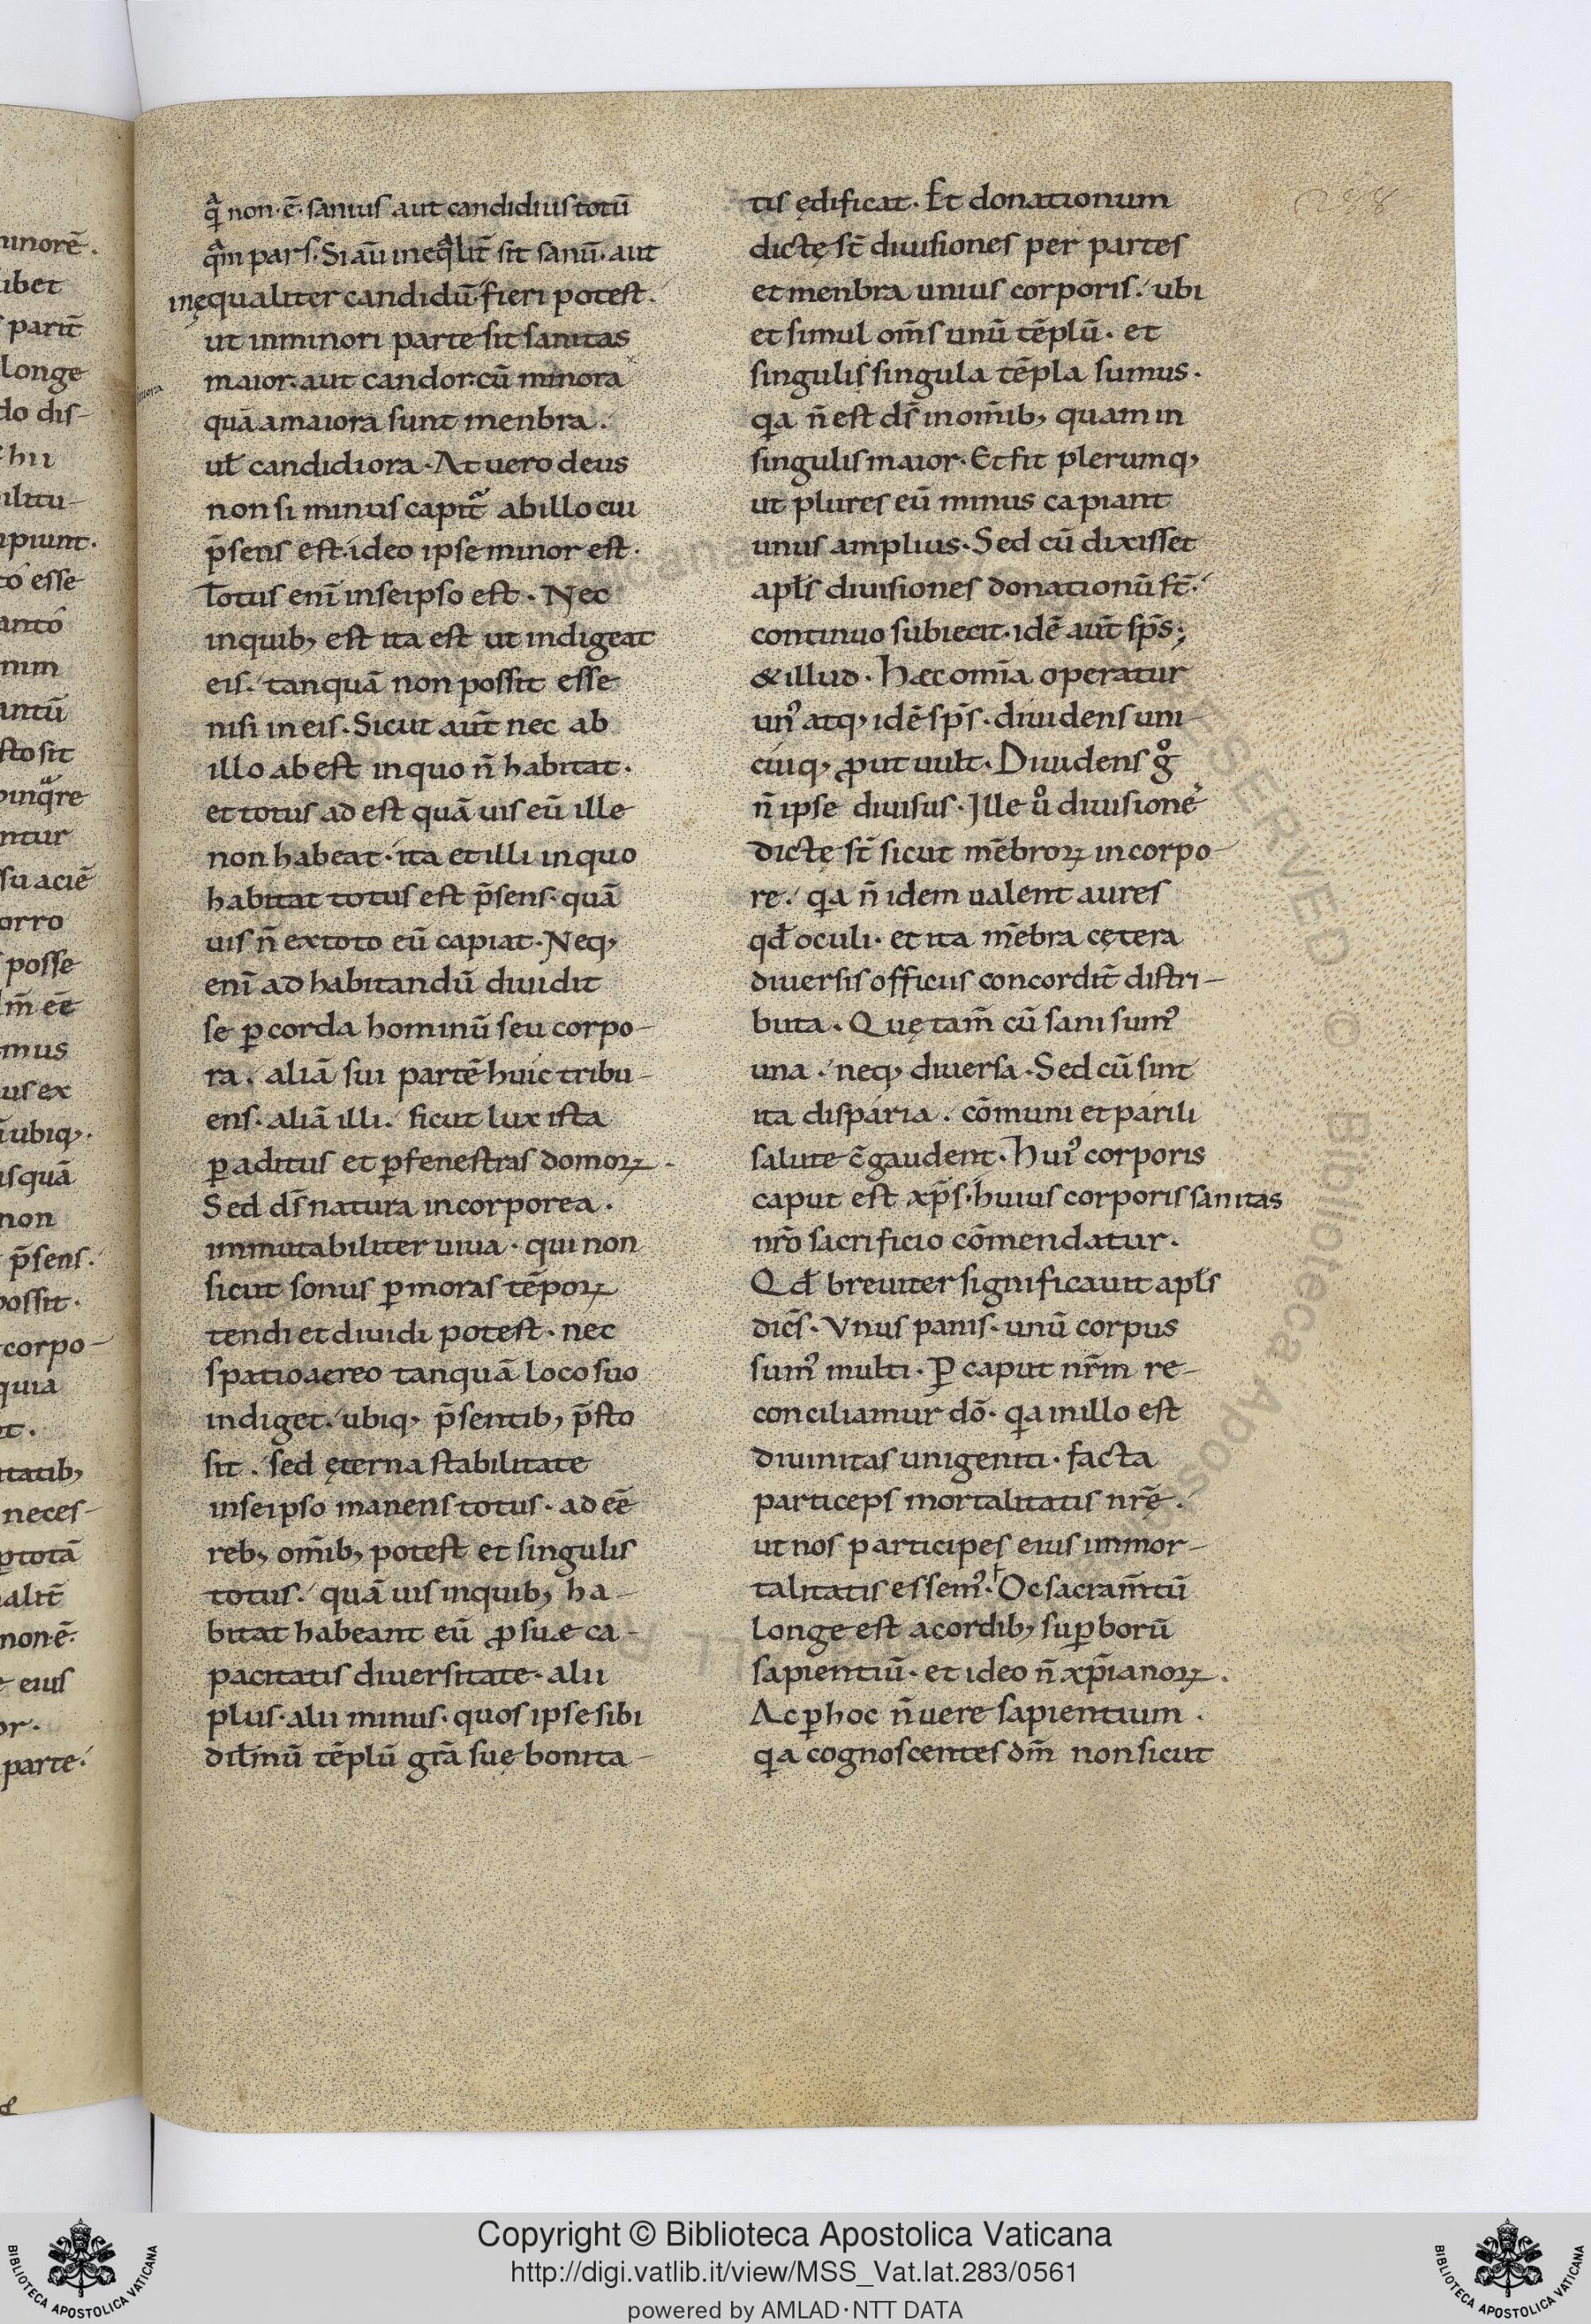 inorē.
ibet
parit̄
longe
do dis-
hii
ilitu-
ipiunt.
to esse
anto
nim
antū
sto sit
pinqͣre
ntur
su aciē
orro
posse
m̄ eē
mus
us ex
ubiq,.
usquā
non
p̄sens.
possit.
corpo-
quia
t.
itatib,
neces-
ꝑtotā
alit̄
non·ē.
eius
or.
parte.
qͣ non·ē· sanius aut candidius totū
qͣm pars. Si aū ineqͣlit̄ sit sanū· aut
inęqualiter candidū· fieri potest.
ut inminori parte sit sanitas
maior· aut candor· cū minora
quā amaiora sunt menbra.
ul̄ candidiora. At uero deus
non si minus capit᷑ abillo cui
p̄sens est· ideo ipse minor est.
Totus enī inseipso est. Nec
inquib, est ita est ut indigeat
eis. tanquā non possit esse
nisi in eis. Sicut aūt nec ab
illo abest inquo n̄ habitat.
et totus ad est quā uis eū ille
non habeat· ita et illi inquo
habitat totus est p̄sens· quā
uis n̄ extoto eū capiat. Neq,
enī ad habitandū diuidit
se ꝑ corda hominū seu corpo-
ra. aliā sui partē huic tribu-
ens· aliā illi. sicut lux ista
ꝑ aditus et ꝑ fenestras domoꝝ.
Sed ds̄ natura incorporea.
immutabiliter uiua· qui non
sicut sonus ꝑ moras tēpoꝝ
tendi et diuidi potest· nec
spatio aereo tanquā loco suo
indiget. ubiq, p̄sentib, p̄sto
sit. sed ęterna stabilitate
inseipso manens totus· ad eē
reb, om̄ib, potest et singulis
totus. quā uis inquib, ha-
bitat habeant eū ꝓ suæ ca-
pacitatis diuersitate· alii
plus· alii minus· quos ipse sibi
dil̄mū tēplū grā suę bonita-
tis ędificat. Et donationum
dictę st̄ diuisiones per partes
et menbra unius corporis. ubi
et simul om̄s unū tēplū. et
singulis singula tēpla sumus.
qa n̄ est ds̄ inom̄ib, quam in
singulis maior. Et fit plerumq,
ut plures eū minus capiant
unus amplius. Sed cū dixisset
apls̄ diuisiones donationū st̄.
continuo subiecit· idē aūt sps̄;
& illud. Hæc om̄ia operatur
un᾽ atq, idē sps̄· diuidens uni-
cuiq, ꝓut uult. Diuidens gͦ
n̄ ipse diuisus. Ille uͦ diuisione
dictę st̄ sicut mēbroꝝ in corpo-
re. qa n̄ idem ualent aures
qd̄ oculi· et ita mēbra cętera
diuersis officiis concordit̄ distri-
buta. Quę tam̄ cū sani sum᾽
una. neq, diuersa. Sed cū sint
ita disparia. cōmuni et parili
salute c̄gaudent. Hui᾽ corporis
caput est xp̄s· huius corporis sanitas
nr̄o sacrificio cōmendatur.
Qd̄ breuiter significauit apls̄
dic̄s. Vnus panis· unū corpus
sum᾽ multi. Ꝑ caput nr̄m re-
conciliamur dō. qa inillo est
diuinitas unigeniti. facta
particeps mortalitatis nr̄ē.
ut nos participes eius immor-
talitatis essem᾽. Oc sacram̄tū
longe est acordib, suꝑborū
sapientiū. et ideo n̄ xp̄ianoꝝ.
Ac ꝑ hoc n̄ uere sapientium.
qa cognoscentes dm̄ non sicut
Copyright © Biblioteca Apostolica Vaticana
http://digi.vatlib.it/view/MSS_Vat.lat.283/0561
powered by AMLAD·NTT DATA
BIBLIOTECA APOSTOLICA VATICANA
BIBLIOTECA APOSTOLICA VATICANA